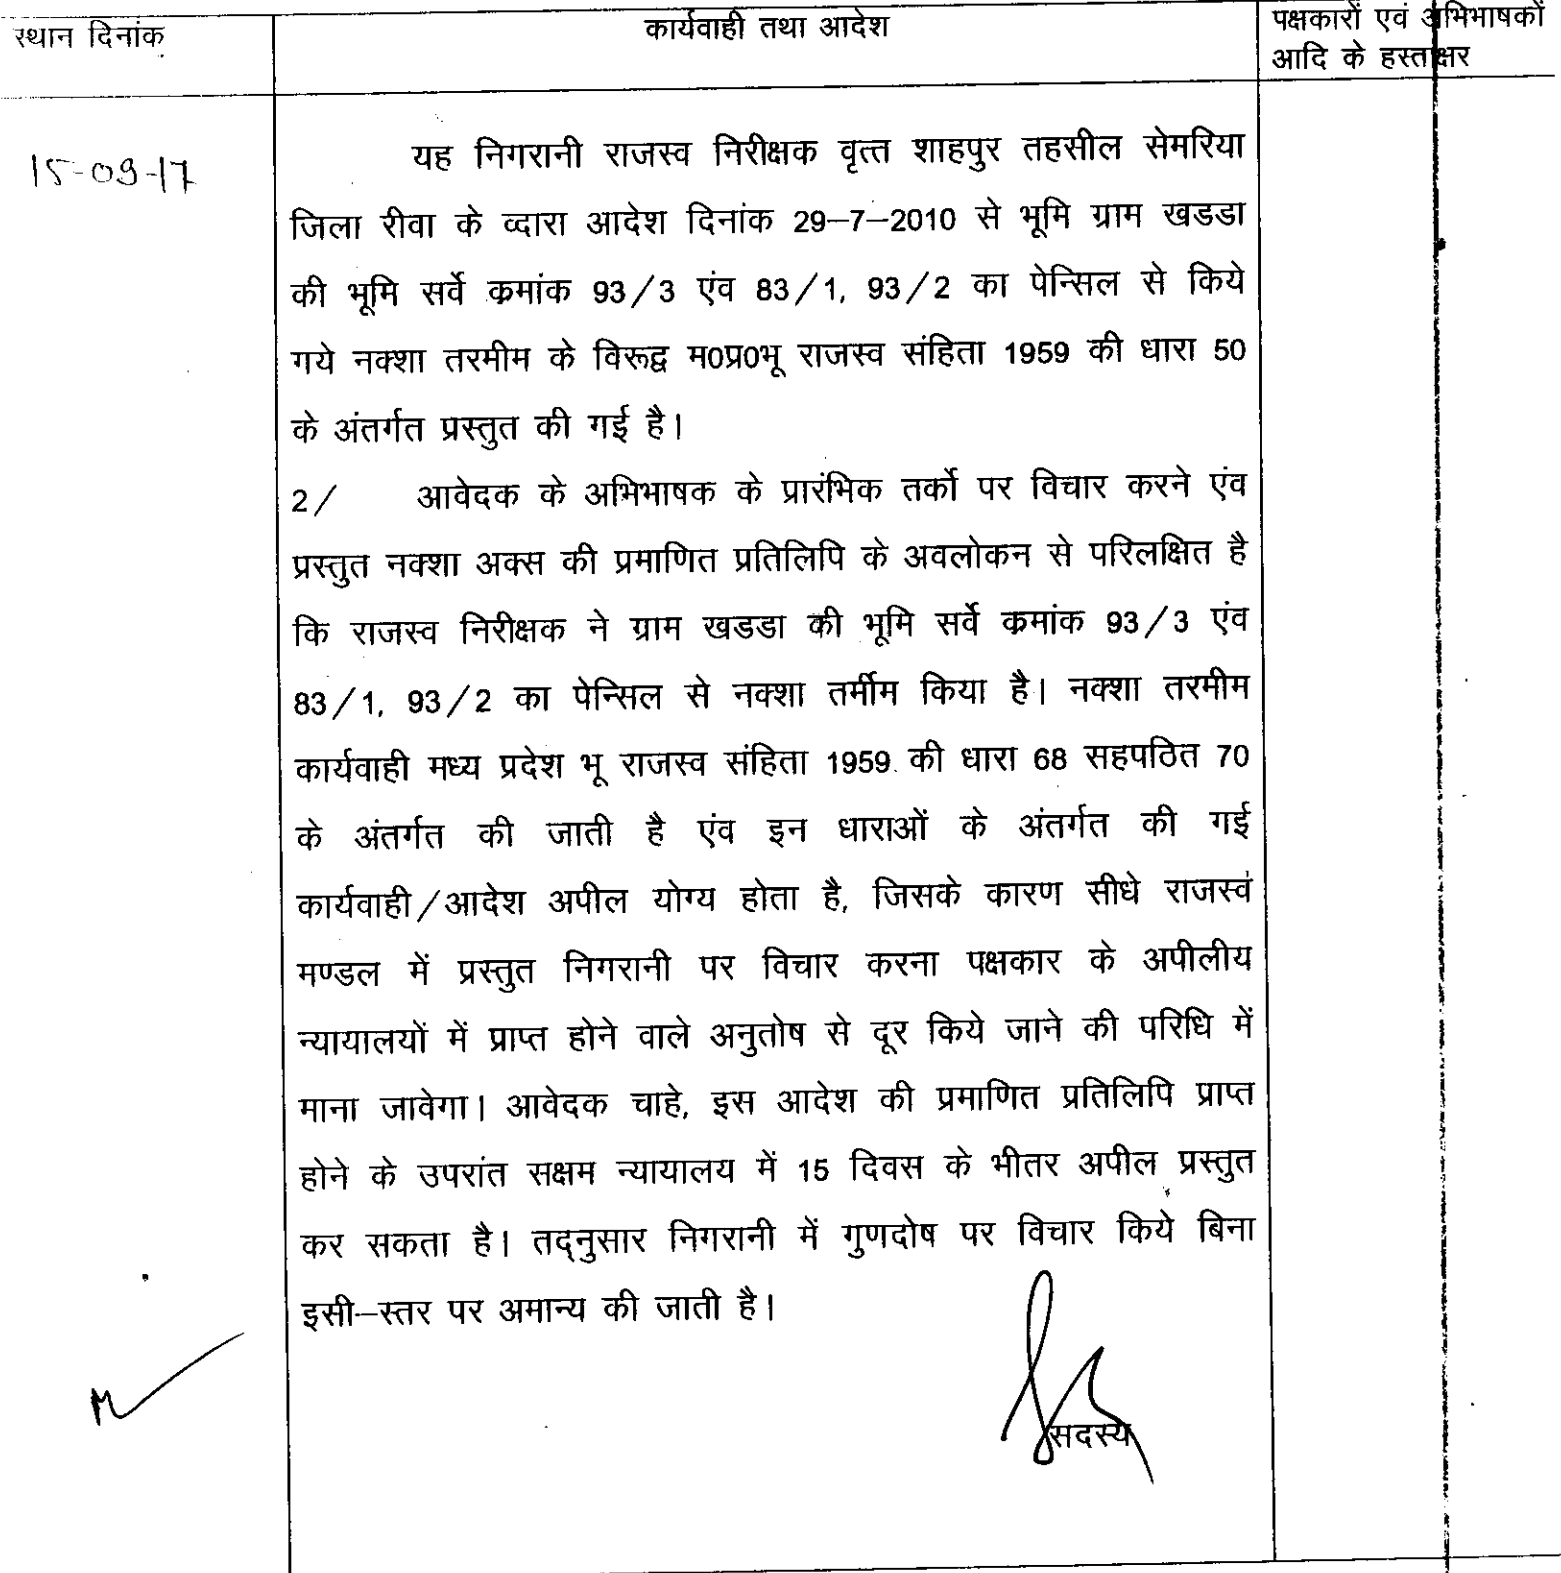 स्थान दिनांक
कार्यवाही तथा आदेश
पक्षकारों एवं अभिभाषकों
आदि के हस्ताक्षर
15-09-17
यह निगरानी राजस्व निरीक्षक वृत्त शाहपुर तहसील सेमरिया
जिला रीवा के व्दारा आदेश दिनांक 29–7–2010 से भूमि ग्राम खडडा
की भूमि सर्वे क्रमांक 93/3 एंव 83/1, 93/2 का पेन्सिल से किये
गये नक्शा तरमीम के विरूद्व म0प्र0भू राजस्व संहिता 1959 की धारा 50
के अंतर्गत प्रस्तुत की गई है।
2/ आवेदक के अभिभाषक के प्रारंभिक तर्को पर विचार करने एंव
प्रस्तुत नक्शा अक्स की प्रमाणित प्रतिलिपि के अवलोकन से परिलक्षित है
कि राजस्व निरीक्षक ने ग्राम खडडा की भूमि सर्वे क्रमांक 93/3 एंव
83/1, 93/2 का पेन्सिल से नक्शा तर्मीम किया है। नक्शा तरमीम
कार्यवाही मध्य प्रदेश भू राजस्व संहिता 1959 की धारा 68 सहपठित 70
के अंतर्गत की जाती है एंव इन धाराओं के अंतर्गत की गई
कार्यवाही/आदेश अपील योग्य होता है, जिसके कारण सीधे राजस्व
मण्डल में प्रस्तुत निगरानी पर विचार करना पक्षकार के अपीलीय
न्यायालयों में प्राप्त होने वाले अनुतोष से दूर किये जाने की परिधि में
माना जावेगा। आवेदक चाहे, इस आदेश की प्रमाणित प्रतिलिपि प्राप्त
होने के उपरांत सक्षम न्यायालय में 15 दिवस के भीतर अपील प्रस्तुत
कर सकता है। तद्नुसार निगरानी में गुणदोष पर विचार किये बिना
इसी–स्तर पर अमान्य की जाती है।
सदस्य